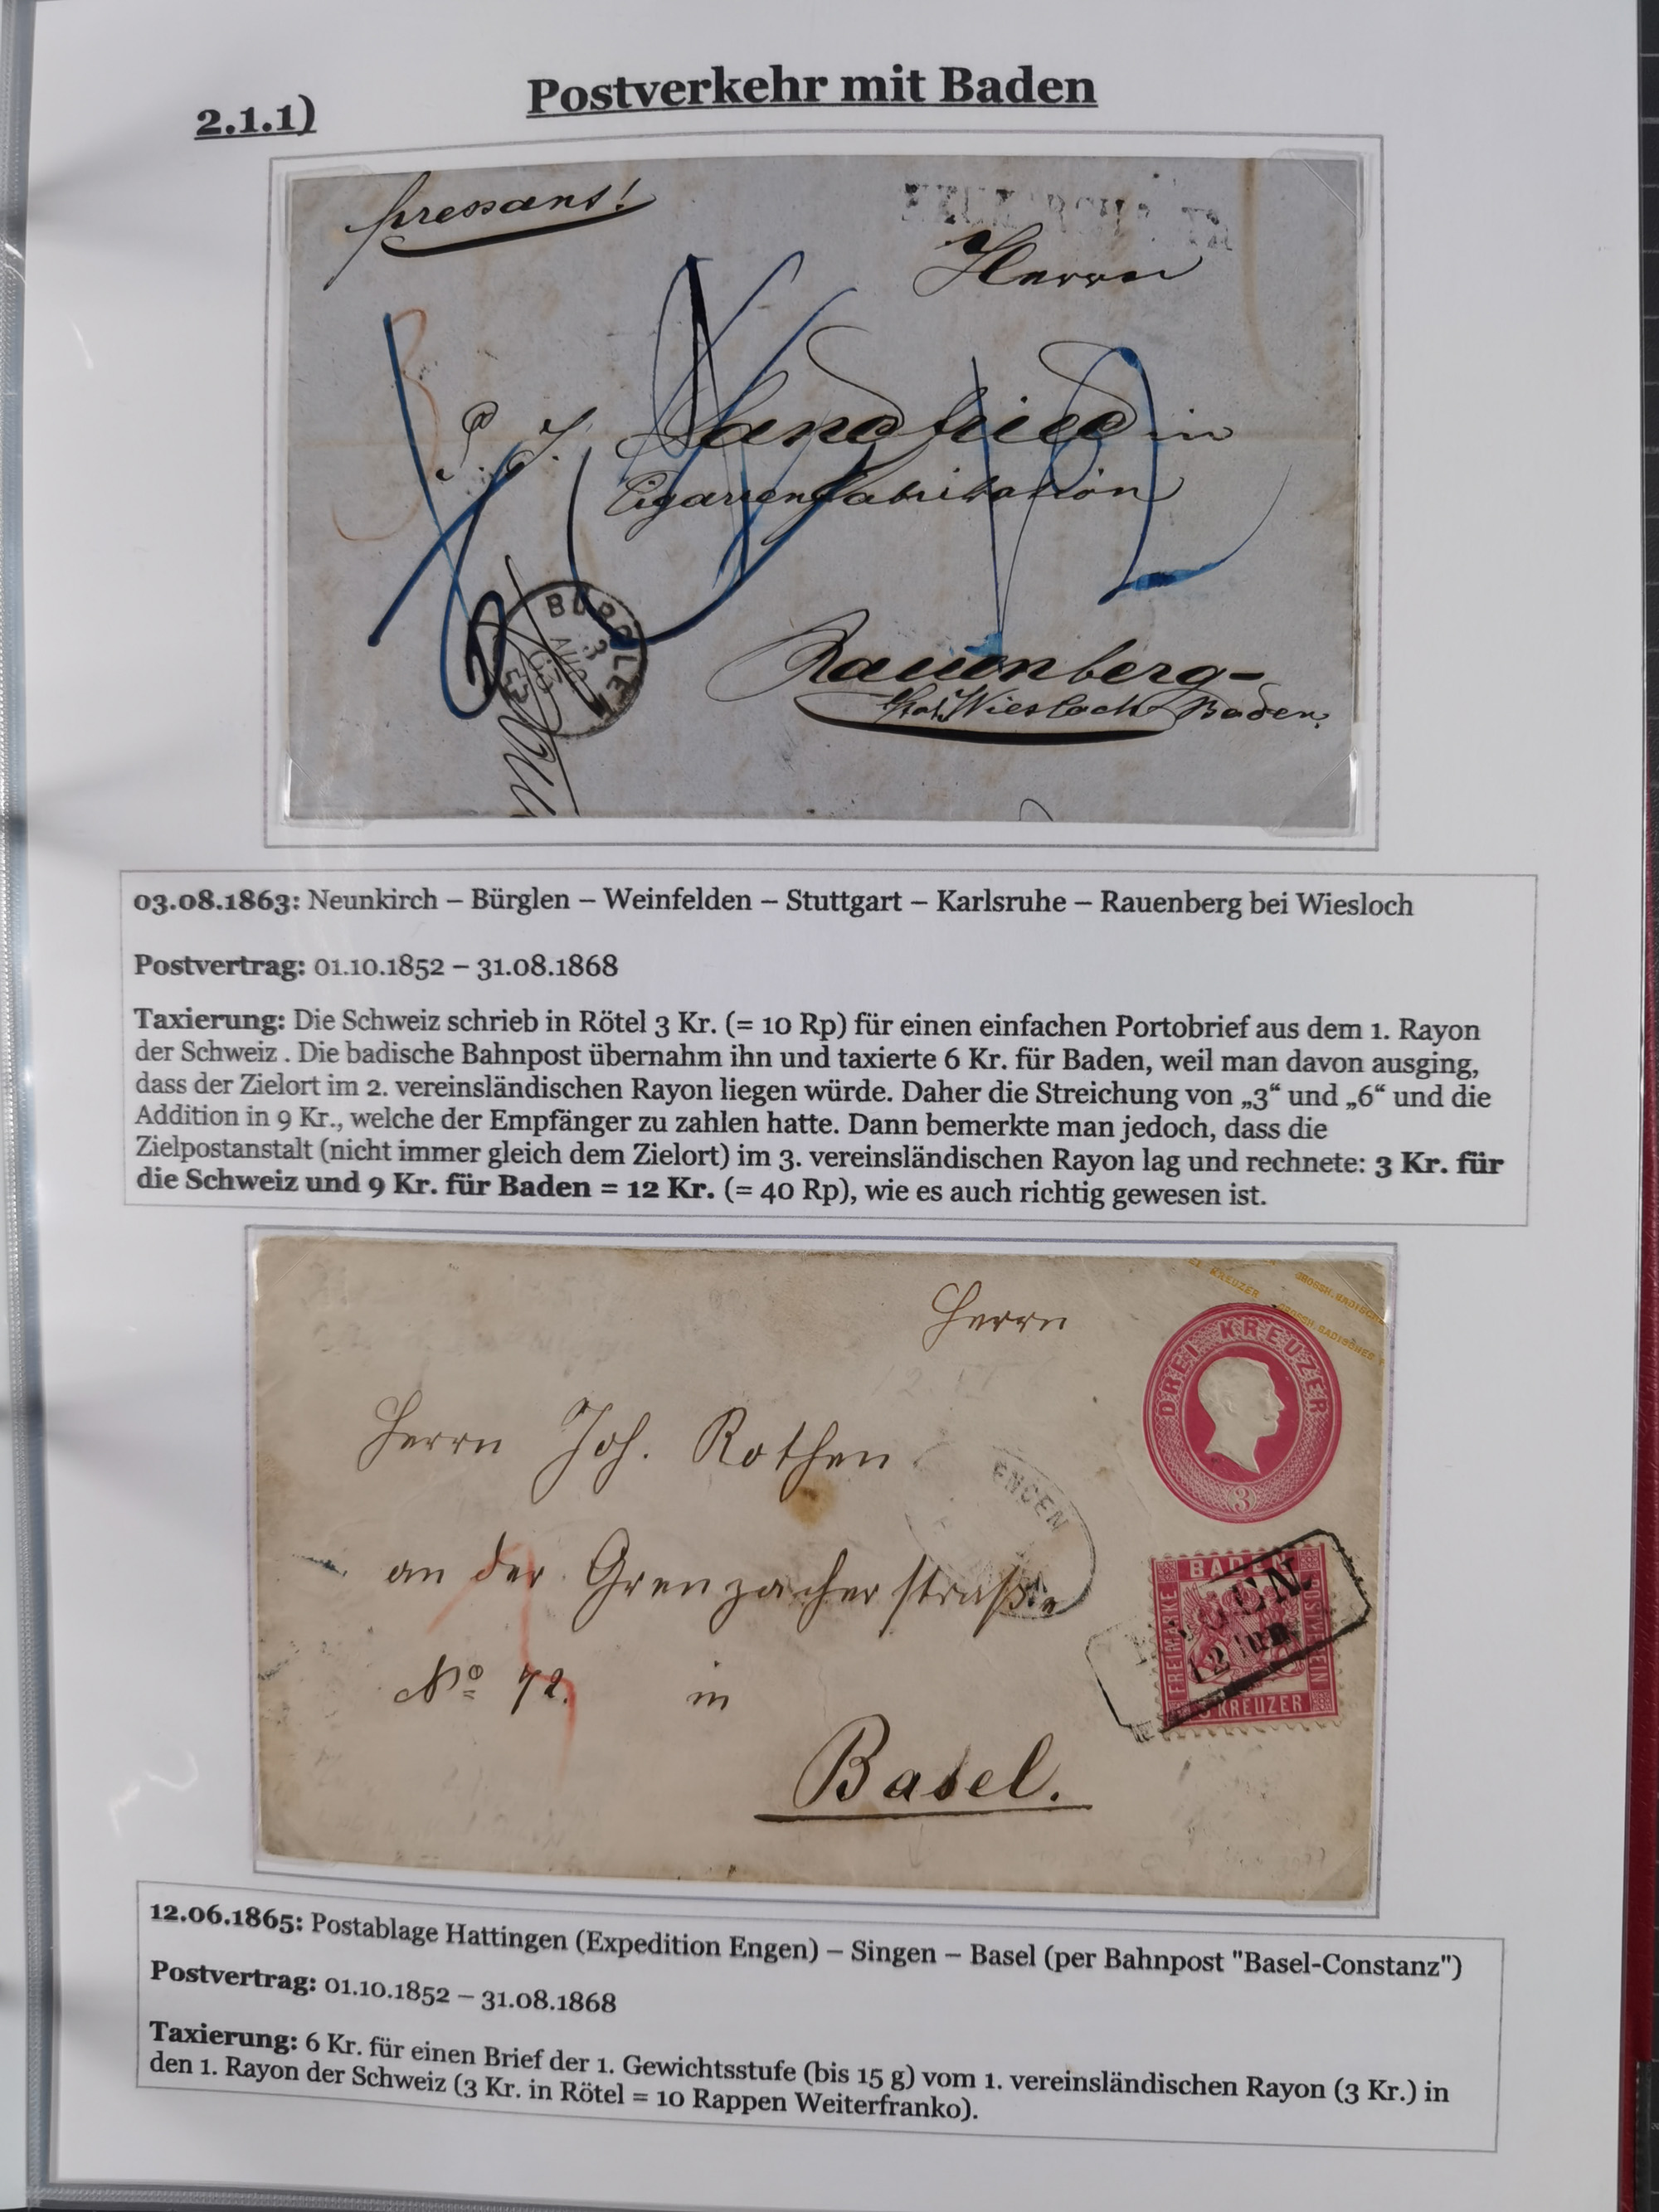 2.1.1)
Postverkehr mit Baden
pressant!
Herrn
P. J. Landfried in
Cigarrenfabrikation
BÜRGLEN
3 AUG 63
Rauenberg-
Wiesloch Baden.
03.08.1863: Neunkirch – Bürglen – Weinfelden – Stuttgart – Karlsruhe – Rauenberg bei Wiesloch
Postvertrag: 01.10.1852 – 31.08.1868
Taxierung: Die Schweiz schrieb in Rötel 3 Kr. (= 10 Rp) für einen einfachen Portobrief aus dem 1. Rayon
der Schweiz . Die badische Bahnpost übernahm ihn und taxierte 6 Kr. für Baden, weil man davon ausging,
dass der Zielort im 2. vereinsländischen Rayon liegen würde. Daher die Streichung von „3“ und „6“ und die
Addition in 9 Kr., welche der Empfänger zu zahlen hatte. Dann bemerkte man jedoch, dass die
Zielpostanstalt (nicht immer gleich dem Zielort) im 3. vereinsländischen Rayon lag und rechnete: 3 Kr. für
die Schweiz und 9 Kr. für Baden = 12 Kr. (= 40 Rp), wie es auch richtig gewesen ist.
KREUZER GROSSH.BADISCH
GROSSH.BADISCHES
Herrn
DREI KREUZER
3
Herrn Joh. Rothen
ENGEN
an der Grenzacherstraße
BADEN
FREIMARKE
POSTVEREIN
3 KREUZER
ENGEN
12 Jun.
No 72. in
Basel.
12.06.1865: Postablage Hattingen (Expedition Engen) – Singen – Basel (per Bahnpost "Basel-Constanz")
Postvertrag: 01.10.1852 – 31.08.1868
Taxierung: 6 Kr. für einen Brief der 1. Gewichtsstufe (bis 15 g) vom 1. vereinsländischen Rayon (3 Kr.) in
den 1. Rayon der Schweiz (3 Kr. in Rötel = 10 Rappen Weiterfranko).